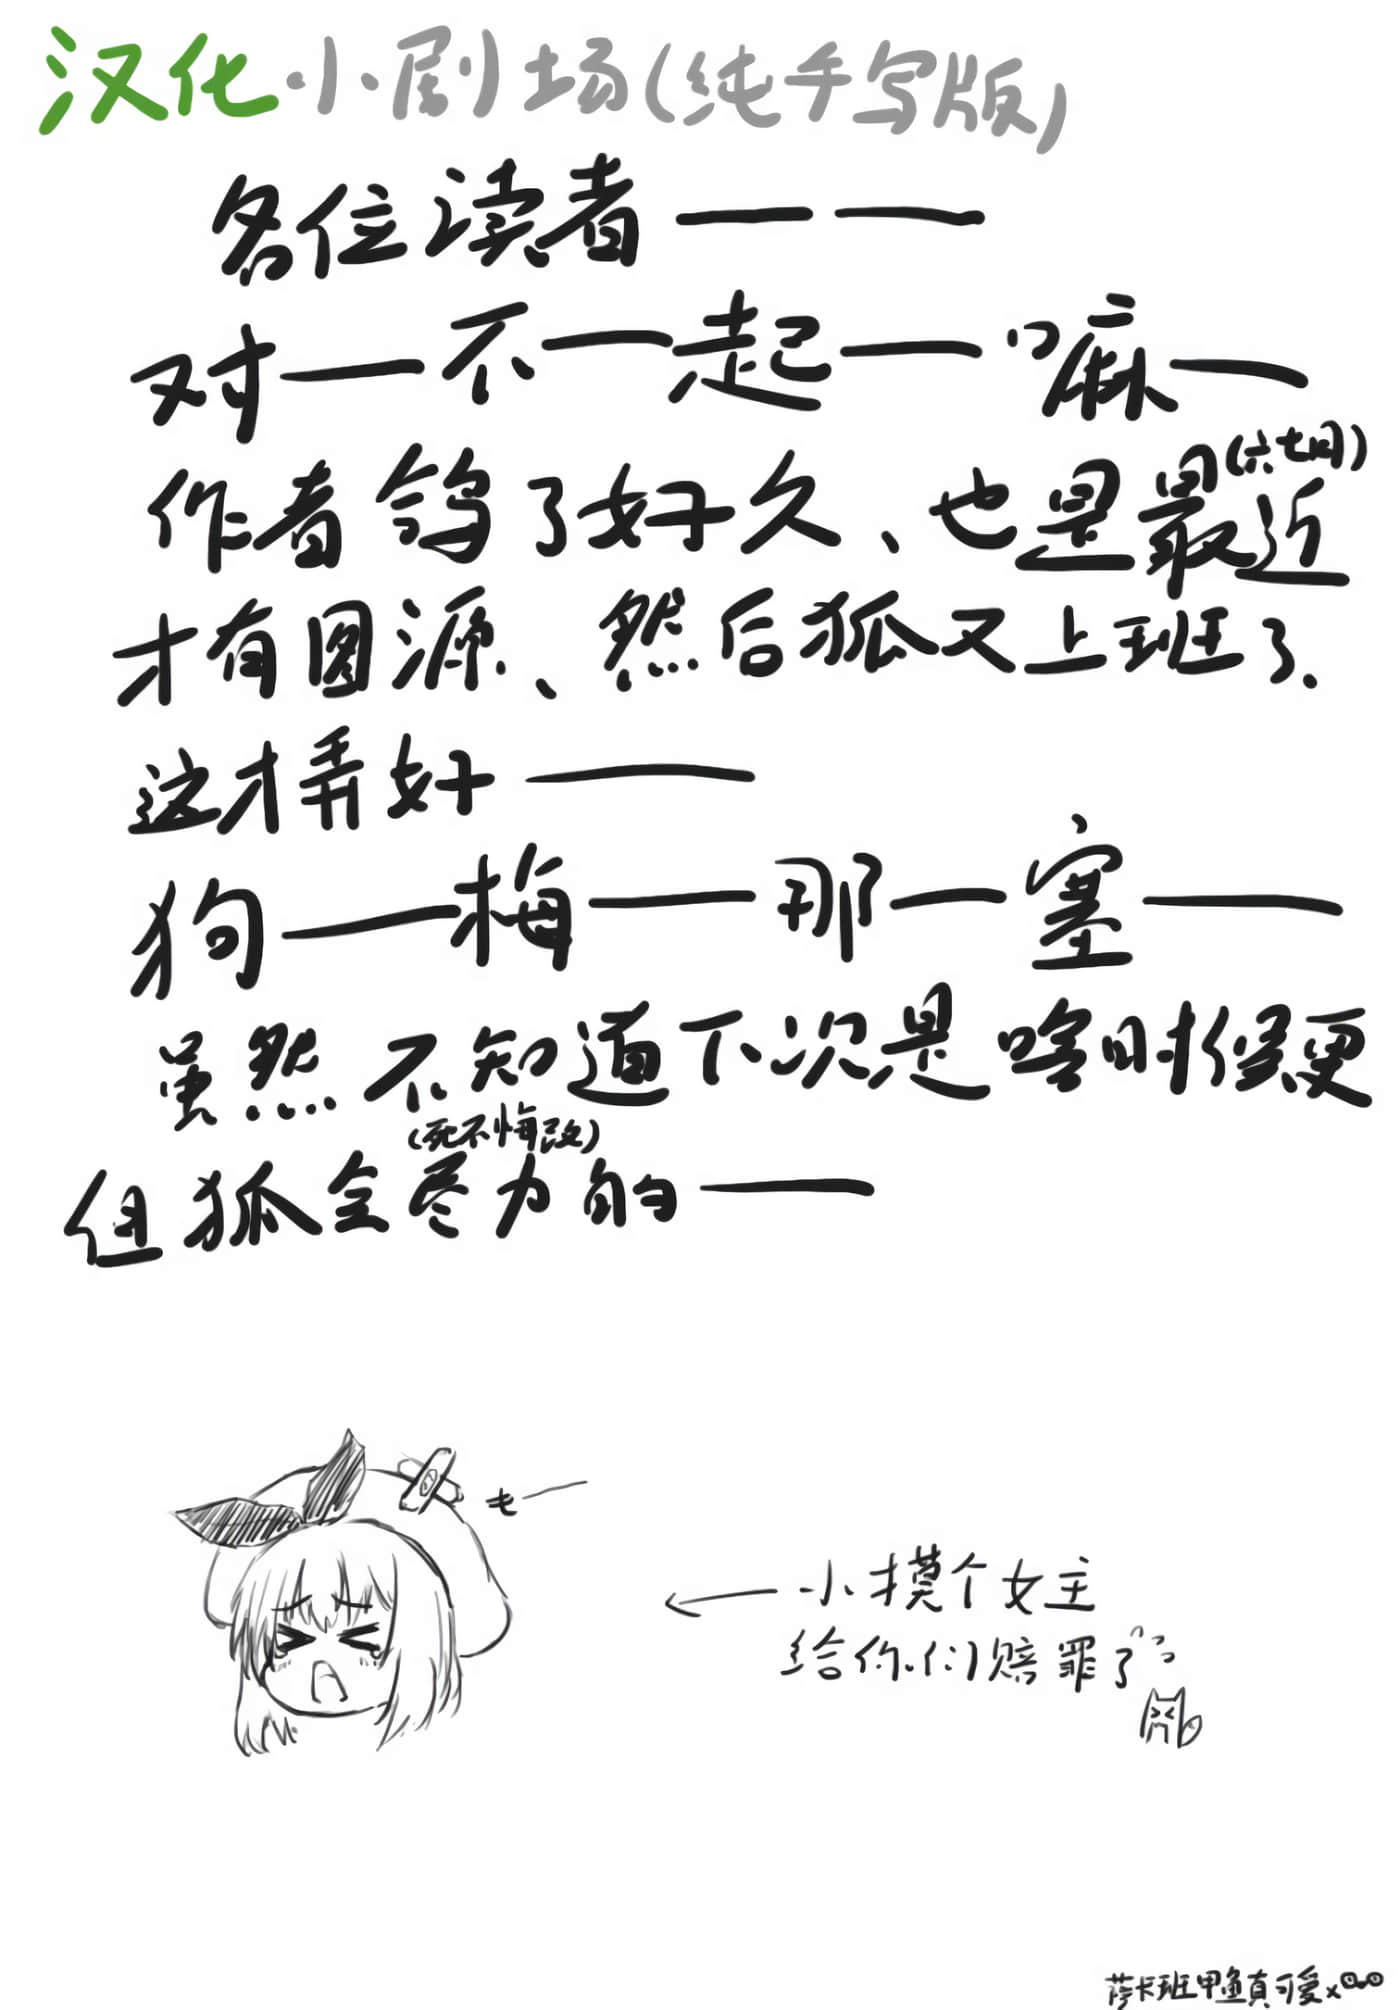 汉化小剧场(纯手写版)
各位读者——
对—不—起—嘛—
作者鸽了好久、也是最近(六七月)
才有图源、然后狐又上班了.
这才弄好——
狗—梅—那—塞—
虽然不知道下次是啥时候更
(死不悔改)
但狐会尽力的—
←小摸个女主
给你们赔罪了
萨卡班甲鱼真可爱x